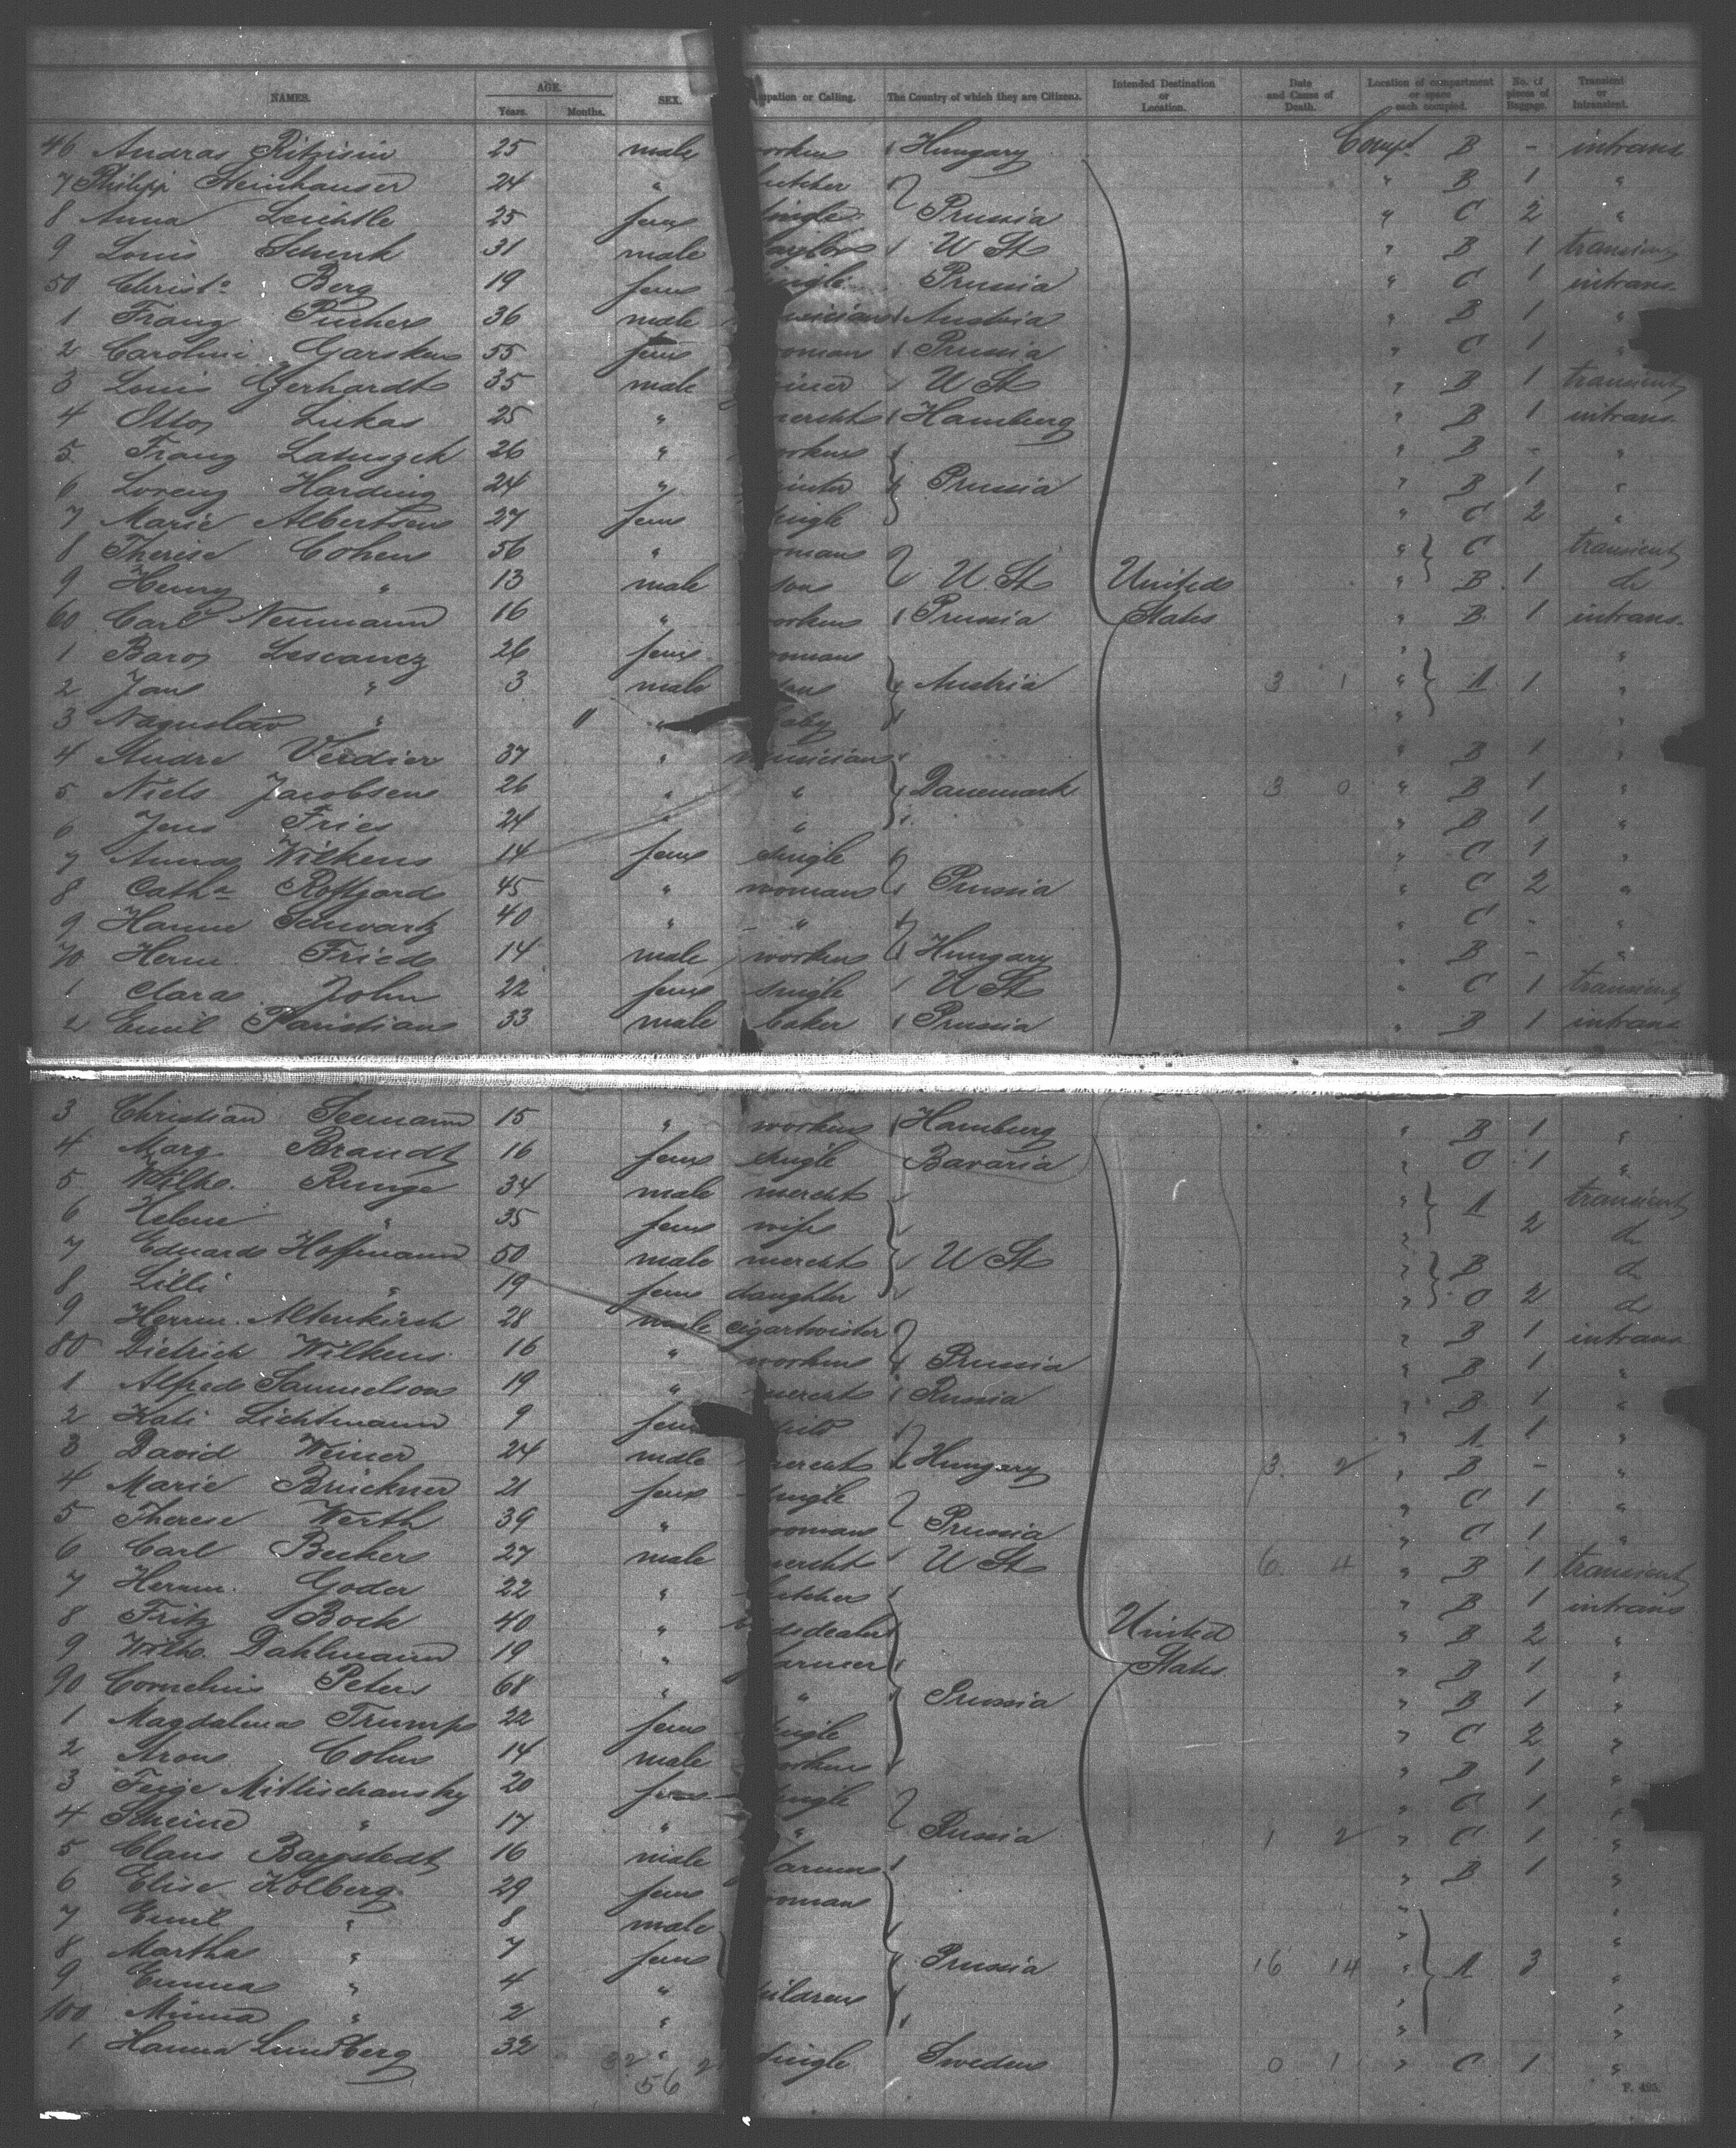 NAMES. AGE. SEX. upation or Calling. The Country of which they are Citizens. Intended Destination or Location. Date and Cause of Death. Location of compartment or space each occupied. No. of pieces of Baggage. Transient or Intransient.
Years. Months.
46 Andras 25 male Hungary Compt B - intrans
7 Philipp Steinhauser 24 " utcher " B 1 "
8 Anna Leichtle 25 fem single Prussia " C 2 "
9 Louis Schenk 31 male taylor U St " B 1 transient
50 Christe Berg 19 fem single Prussia " C 1 intrans
1 Franz Pucher 36 male musician Austria " B 1 "
2 Caroline Garsken 55 fem woman Prussia " C 1 "
3 Louis Gerhardt 35 male U St " B 1 transient
4 Otto Lukas 25 " mercht Hamburg " B 1 intrans
5 Franz Latuszek 26 " orker " B - "
6 Lorenz Harding 24 " Prussia " B 1 "
7 Marie Albertsen 27 fem single " C 2 "
8 Therese Cohen 56 " woman " C transient
9 Henry " 13 male son U. St United " B 1 do
60 Carl Neumann 16 " orker Prussia States " B 1 intrans
1 26 fem woman " "
2 Jan " 3 male son Austria 3 1 " A 1 "
3 " 11 " baby "
4 Andre Verdier 37 " musician " B 1 "
5 Niels Jacobsen 26 " " Danemark 3 0 " B 1 "
6 Jens Fries 24 " " " B 1 "
7 Anna Wilkens 14 fem single " C 1 "
8 Catha 45 " woman Prussia " C 2 "
9 Hanne Schwartz 40 " " " C - "
70 Herm. Fried 14 male worker Hungary " B - "
1 Clara John 22 fem single U St " C 1 transient
2 Emil Paristian 33 male baker Prussia " B 1 intrans
3 Christian Seemann 15 " worker Hamburg " B 1 "
4 Marg Brandt 16 fem single Bavaria " C 1 "
5 Wilh. Runge 34 male mercht " A transient
6 Helene " 35 fem wife " 2 do
7 Eduard Hoffmann 50 male mercht U St " B do
8 Lilli " 19 fem daughter " C 2 do
9 Herm. Altenkirch 28 male cigartwister " B 1 intrans
80 Dietrich Wilkens 16 " worker Prussia " B 1 "
1 Alfred Samuelson 19 " mercht Russia " B 1 "
2 Kati Lichtmann 9 fem " A 1 "
3 David Weiner 24 male mercht Hungary 3 2 " B - "
4 Marie Brückner 21 fem single " C 1 "
5 Therese Werth 39 " woman Prussia " C 1 "
6 Carl Becker 27 male mercht U St 6 4 " B 1 transient
7 Herm. Goder 22 " utcher " B 1 intrans
8 Fritz Bock 40 " dsdealer United " B 2 "
9 Wilh. Dahlmann 19 " farmer States " B 1 "
90 Cornelius Peters 68 " " Prussia " B 1 "
1 Magdalena Trump 22 fem single " C 2 "
2 Aron Cohn 14 male orker " B 1 "
3 Feige Mittischansky 20 fem single " C 1 "
4 Scheine " 17 " " Russia 1 2 " C 1 "
5 Claus Bargstedt 16 male farmer " B 1 "
6 Elise Kolberg 29 fem woman " "
7 Emil " 8 male " "
8 Martha " 7 fem Prussia 16 14 " A 3 "
9 Emma " 4 " hildren " "
100 Minna " 2 " " "
1 Hanna Lundberg 32 " single Sweden 0 1 " C 1 "
32 2
56